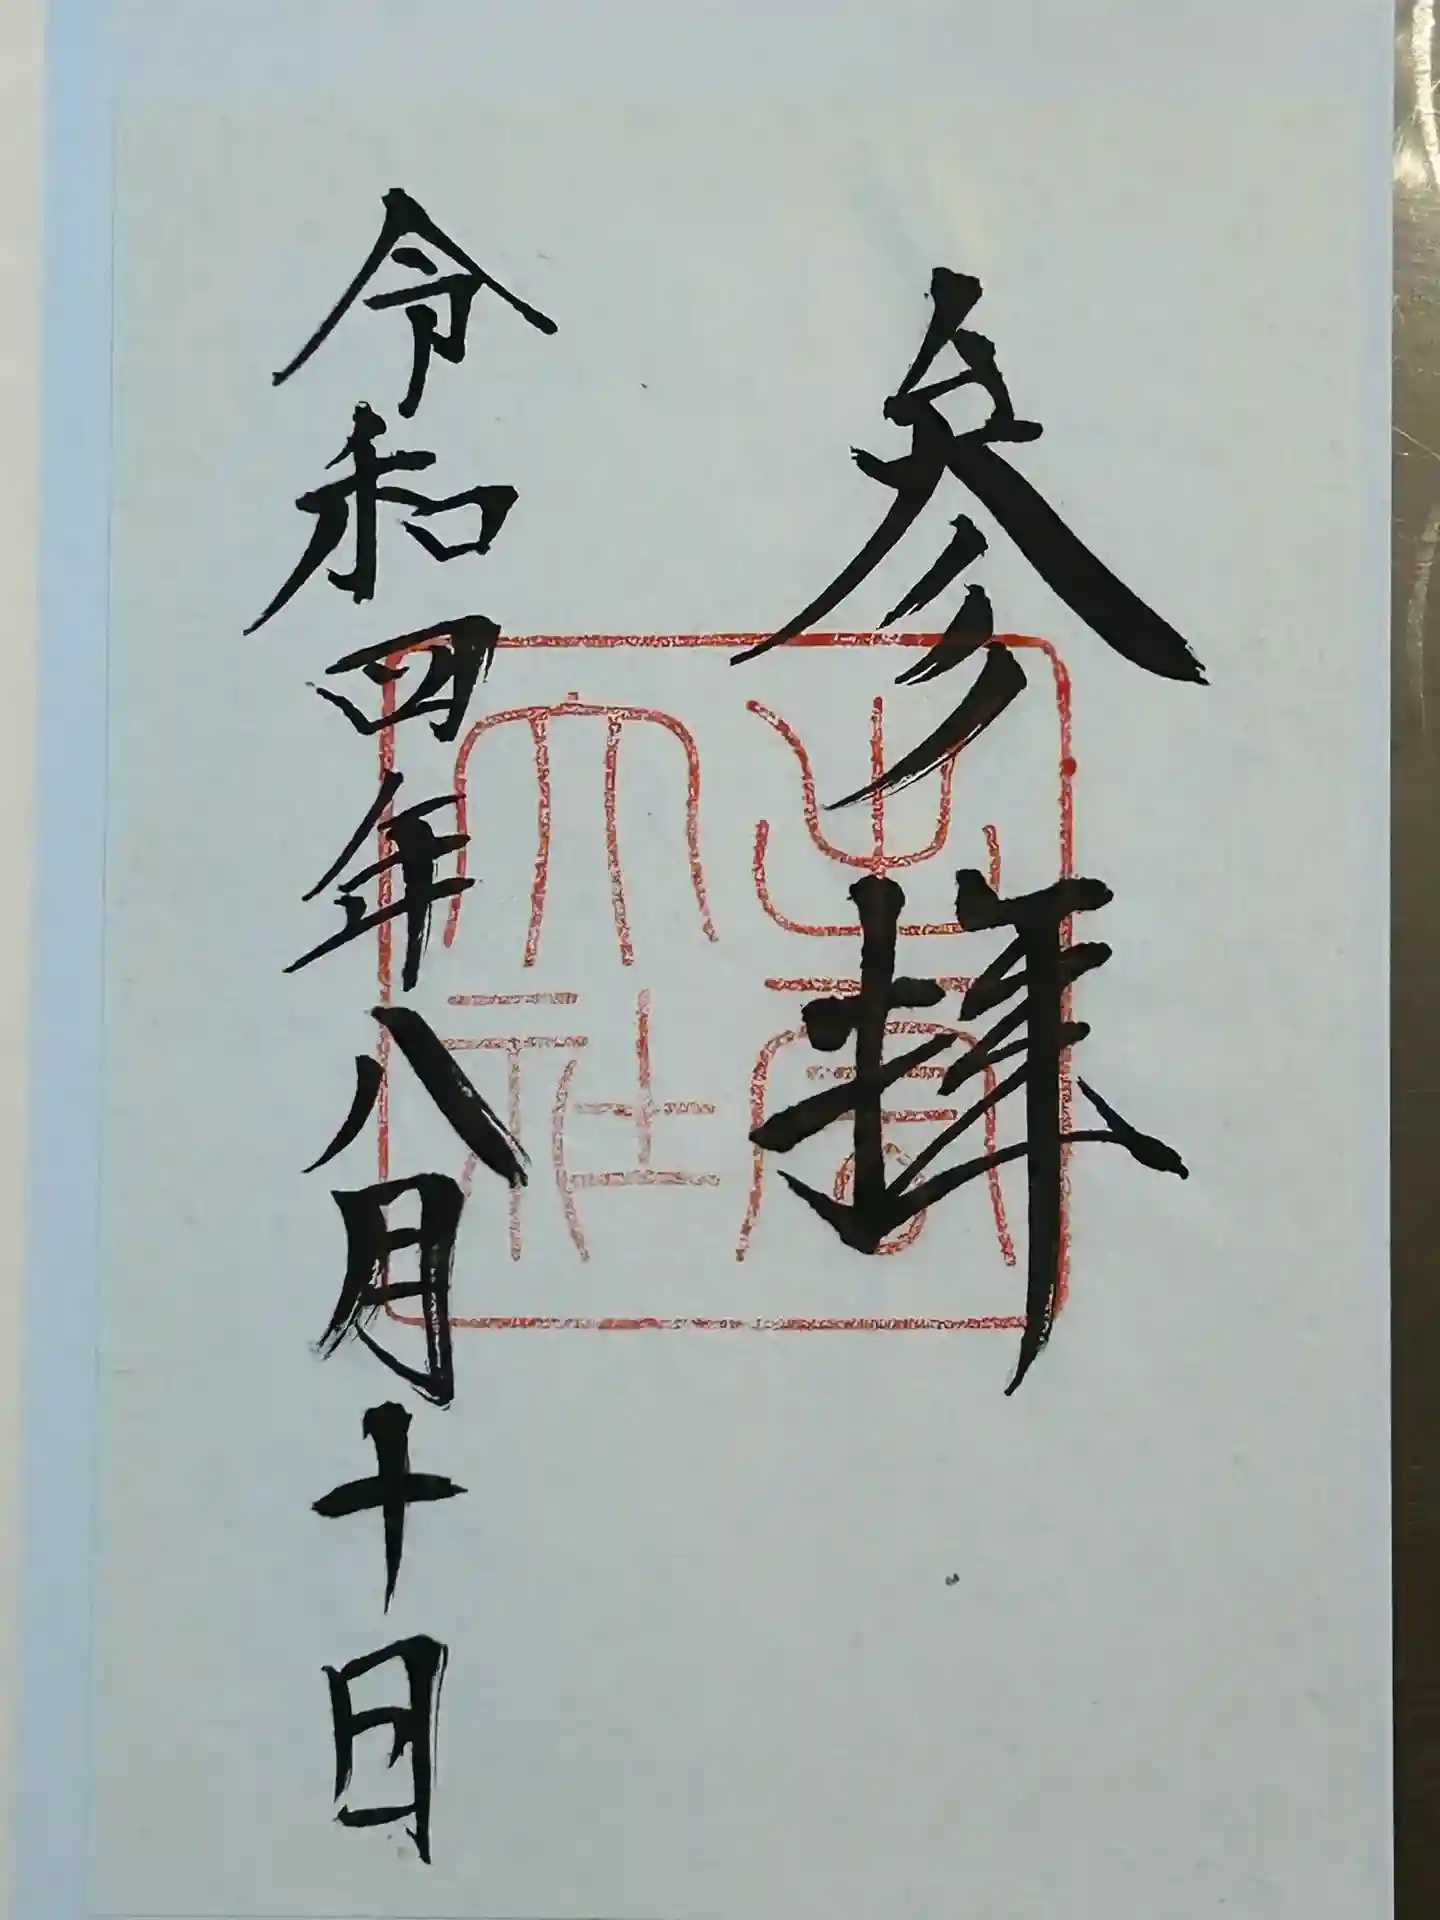 参拝
出雲
大社
令和四年八月十日